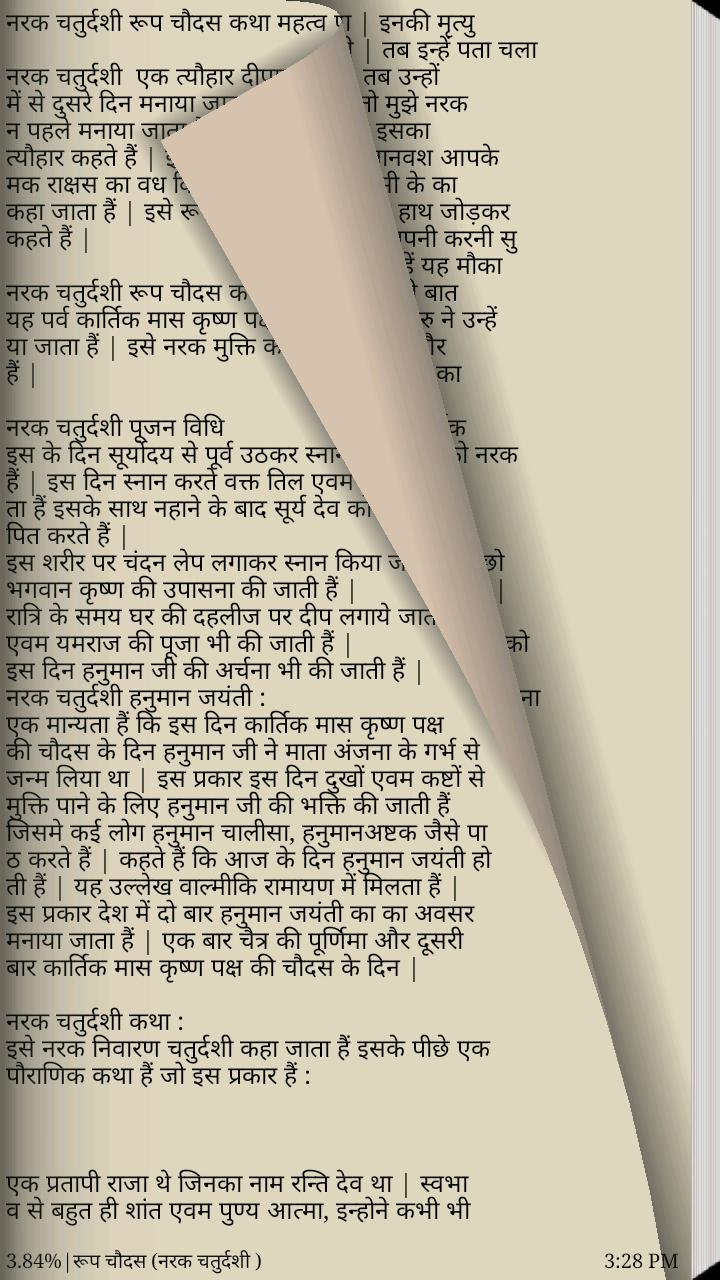 नरक चतुर्दशी रूप चौदस कथा महत्व
नरक चतुर्दशी एक त्यौहार
में से दुसरे दिन मनाया
न पहले मनाया
त्यौहार कहते हैं |
मक राक्षस का वध
कहा जाता हैं | इसे
कहते हैं |
नरक चतुर्दशी रूप चौदस
यह पर्व कार्तिक मास कृष्ण
या जाता हैं | इसे नरक मुक्ति
हैं |
नरक चतुर्दशी पूजन विधि
इस के दिन सूर्योदय से पूर्व उठकर
हैं | इस दिन स्नान करते वक्त तिल एवम
ता हैं इसके साथ नहाने के बाद सूर्य देव को
पित करते हैं |
इस शरीर पर चंदन लेप लगाकर स्नान किया
भगवान कृष्ण की उपासना की जाती हैं |
रात्रि के समय घर की दहलीज पर दीप लगाये
एवम यमराज की पूजा भी की जाती हैं |
इस दिन हनुमान जी की अर्चना भी की जाती हैं |
नरक चतुर्दशी हनुमान जयंती :
एक मान्यता हैं कि इस दिन कार्तिक मास कृष्ण पक्ष
की चौदस के दिन हनुमान जी ने माता अंजना के गर्भ से
जन्म लिया था | इस प्रकार इस दिन दुखों एवम कष्टों से
मुक्ति पाने के लिए हनुमान जी की भक्ति की जाती हैं
जिसमे कई लोग हनुमान चालीसा, हनुमानअष्टक जैसे पा
ठ करते हैं | कहते हैं कि आज के दिन हनुमान जयंती हो
ती हैं | यह उल्लेख वाल्मीकि रामायण में मिलता हैं |
इस प्रकार देश में दो बार हनुमान जयंती का का अवसर
मनाया जाता हैं | एक बार चैत्र की पूर्णिमा और दूसरी
बार कार्तिक मास कृष्ण पक्ष की चौदस के दिन |
नरक चतुर्दशी कथा :
इसे नरक निवारण चतुर्दशी कहा जाता हैं इसके पीछे एक
पौराणिक कथा हैं जो इस प्रकार हैं :
एक प्रतापी राजा थे जिनका नाम रन्ति देव था | स्वभा
व से बहुत ही शांत एवम पुण्य आत्मा, इन्होने कभी भी
| इनकी मृत्यु
| तब इन्हें पता चला
तब उन्हों
मुझे नरक
इसका
आपके
के का
हाथ जोड़कर
करनी सु
यह मौका
बात
ने उन्हें
का
नरक
|
को
3.84%|रूप चौदस (नरक चतुर्दशी )
3:28 PM